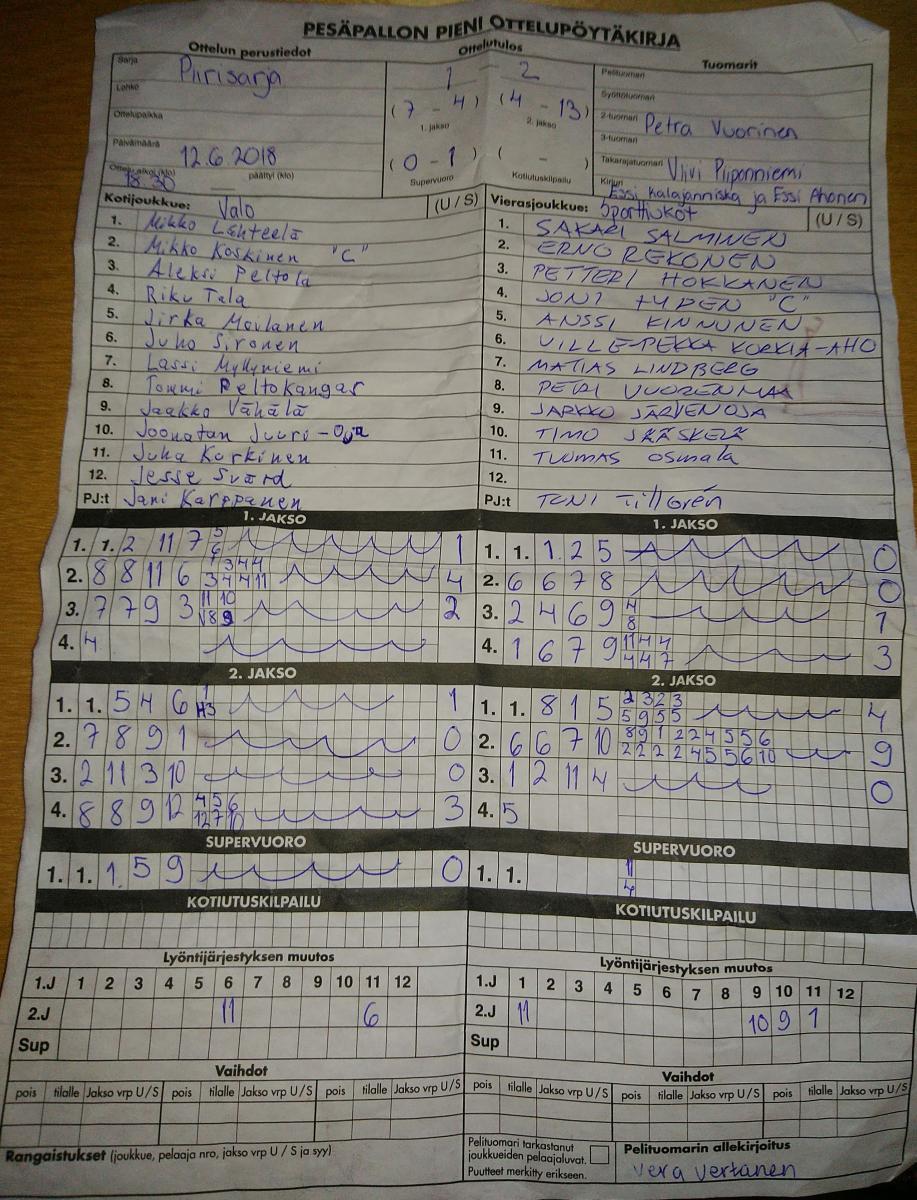 PESÄPALLON PIENI OTTELUPÖYTÄKIRJA
Ottelun perustiedot
Ottelutulos
Tuomarit
Sarja Piirisarja
Lohko
Ottelupaikka
Päivämäärä 12.6.2018
18.30 päättyi (klo)
1 – 2
(7 – 4) (4 – 13)
1. jakso 2. jakso
(0 – 1) ( – )
Supervuoro Kotiutuskilpailu
Pelituomari
Syöttötuomari
2-tuomari Petra Vuorinen
3-tuomari
Takarajatuomari Viivi Piiponniemi
Kirjuri Essi Kalajanniska ja Essi Ahonen
Kotijoukkue: Valo (U / S)
1. Mikko Lähteelä
2. Mikko Koskinen "C"
3. Aleksi Peltola
4. Riku Tala
5. Jirka Moilanen
6. Juho Sironen
7. Lassi Myllyniemi
8. Tommi Peltokangas
9. Jaakko Vähälä
10. Joonatan Juuri-Oja
11. Juha Korkinen
12. Jesse Svärd
PJ:t Jani Karppanen
Vierasjoukkue: Sporttiukot (U / S)
1. SAKARI SALMINEN
2. ERNO REKONEN
3. PETTERI HOKKANEN
4. JONI TYDEN "C"
5. ANSSI KINNUNEN
6. VILLE-PEKKA KORKIA-AHO
7. MATIAS LINDBERG
8. PETRI VUORENMAA
9. JARKKO JÄRVENOJA
10. TIMO JÄÄSKELÄ
11. TUOMAS Osmala
12.
PJ:t TONI Tillgrén
1. JAKSO
1. 1. 2 11 7 5 1
6
2. 8 8 11 6 1 3 4 4 4
3 4 4 11
3. 7 7 9 3 11 10 2
8 9
4. 4
2. JAKSO
1. 1. 5 4 6 1 1
3
2. 7 8 9 1 0
3. 2 11 3 10 0
4. 8 8 9 12 4 5 6 3
12 7 10
SUPERVUORO
1. 1. 1 5 9 0
KOTIUTUSKILPAILU
Lyöntijärjestyksen muutos
1.J 1 2 3 4 5 6 7 8 9 10 11 12
2.J 11 6
Sup
Vaihdot
pois tilalle Jakso vrp U / S pois tilalle Jakso vrp U / S pois tilalle Jakso vrp U / S
Rangaistukset (joukkue, pelaaja nro, jakso vrp U / S ja syy)
1. JAKSO
1. 1. 1 2 5 0
2. 6 6 7 8 0
3. 2 4 6 9 4 1
8
4. 1 6 7 9 11 4 4 3
4 4 7
2. JAKSO
1. 1. 8 1 5 2 3 2 3 4
5 9 5 5
2. 6 6 7 10 8 9 1 2 2 4 5 5 6 9
2 2 2 2 4 5 5 6 10
3. 1 2 11 4 0
4. 5
SUPERVUORO
1. 1. 11
4
KOTIUTUSKILPAILU
Lyöntijärjestyksen muutos
1.J 1 2 3 4 5 6 7 8 9 10 11 12
2.J 11 10 9 1
Sup
Vaihdot
pois tilalle Jakso vrp U / S pois tilalle Jakso vrp U / S pois tilalle Jakso vrp U / S
Pelituomari tarkastanut
joukkueiden pelaajaluvat.
Puutteet merkitty erikseen.
Pelituomarin allekirjoitus
Vera Vertanen